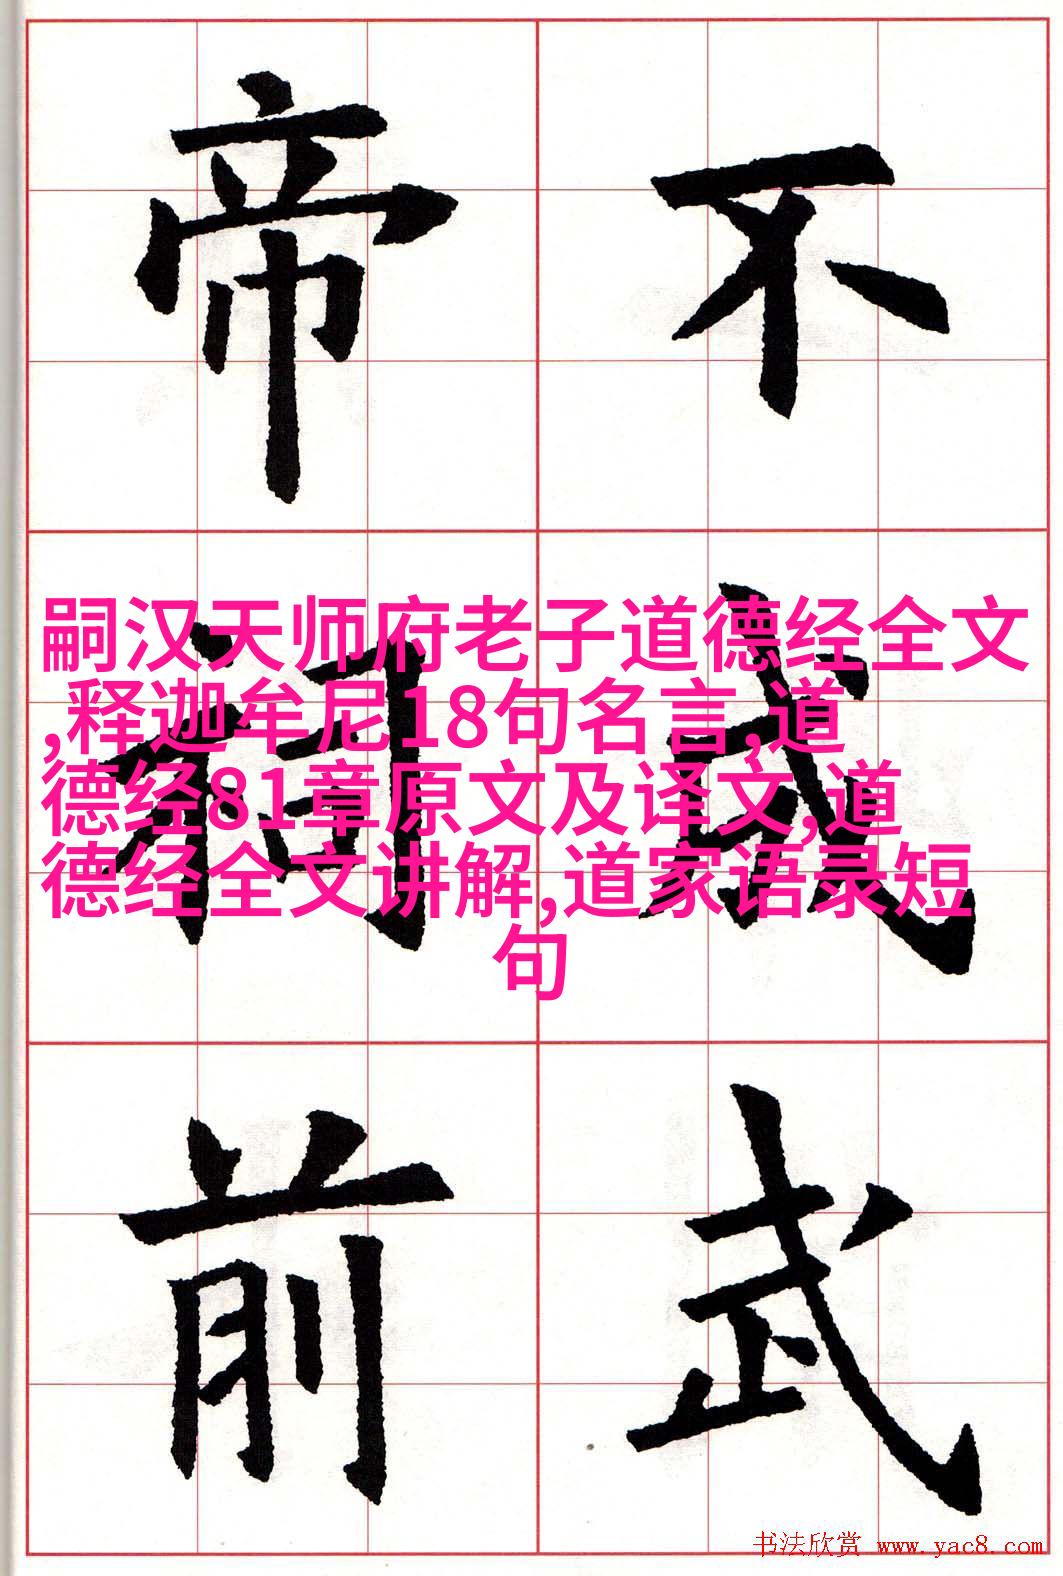 不
武
帝
祠
前
嗣汉天师府老子道德经全文
,释迦牟尼18句名言,道
德经81章原文及译文,道
德经全文讲解,道家语录短
句
书法欣赏 www.yac8.com